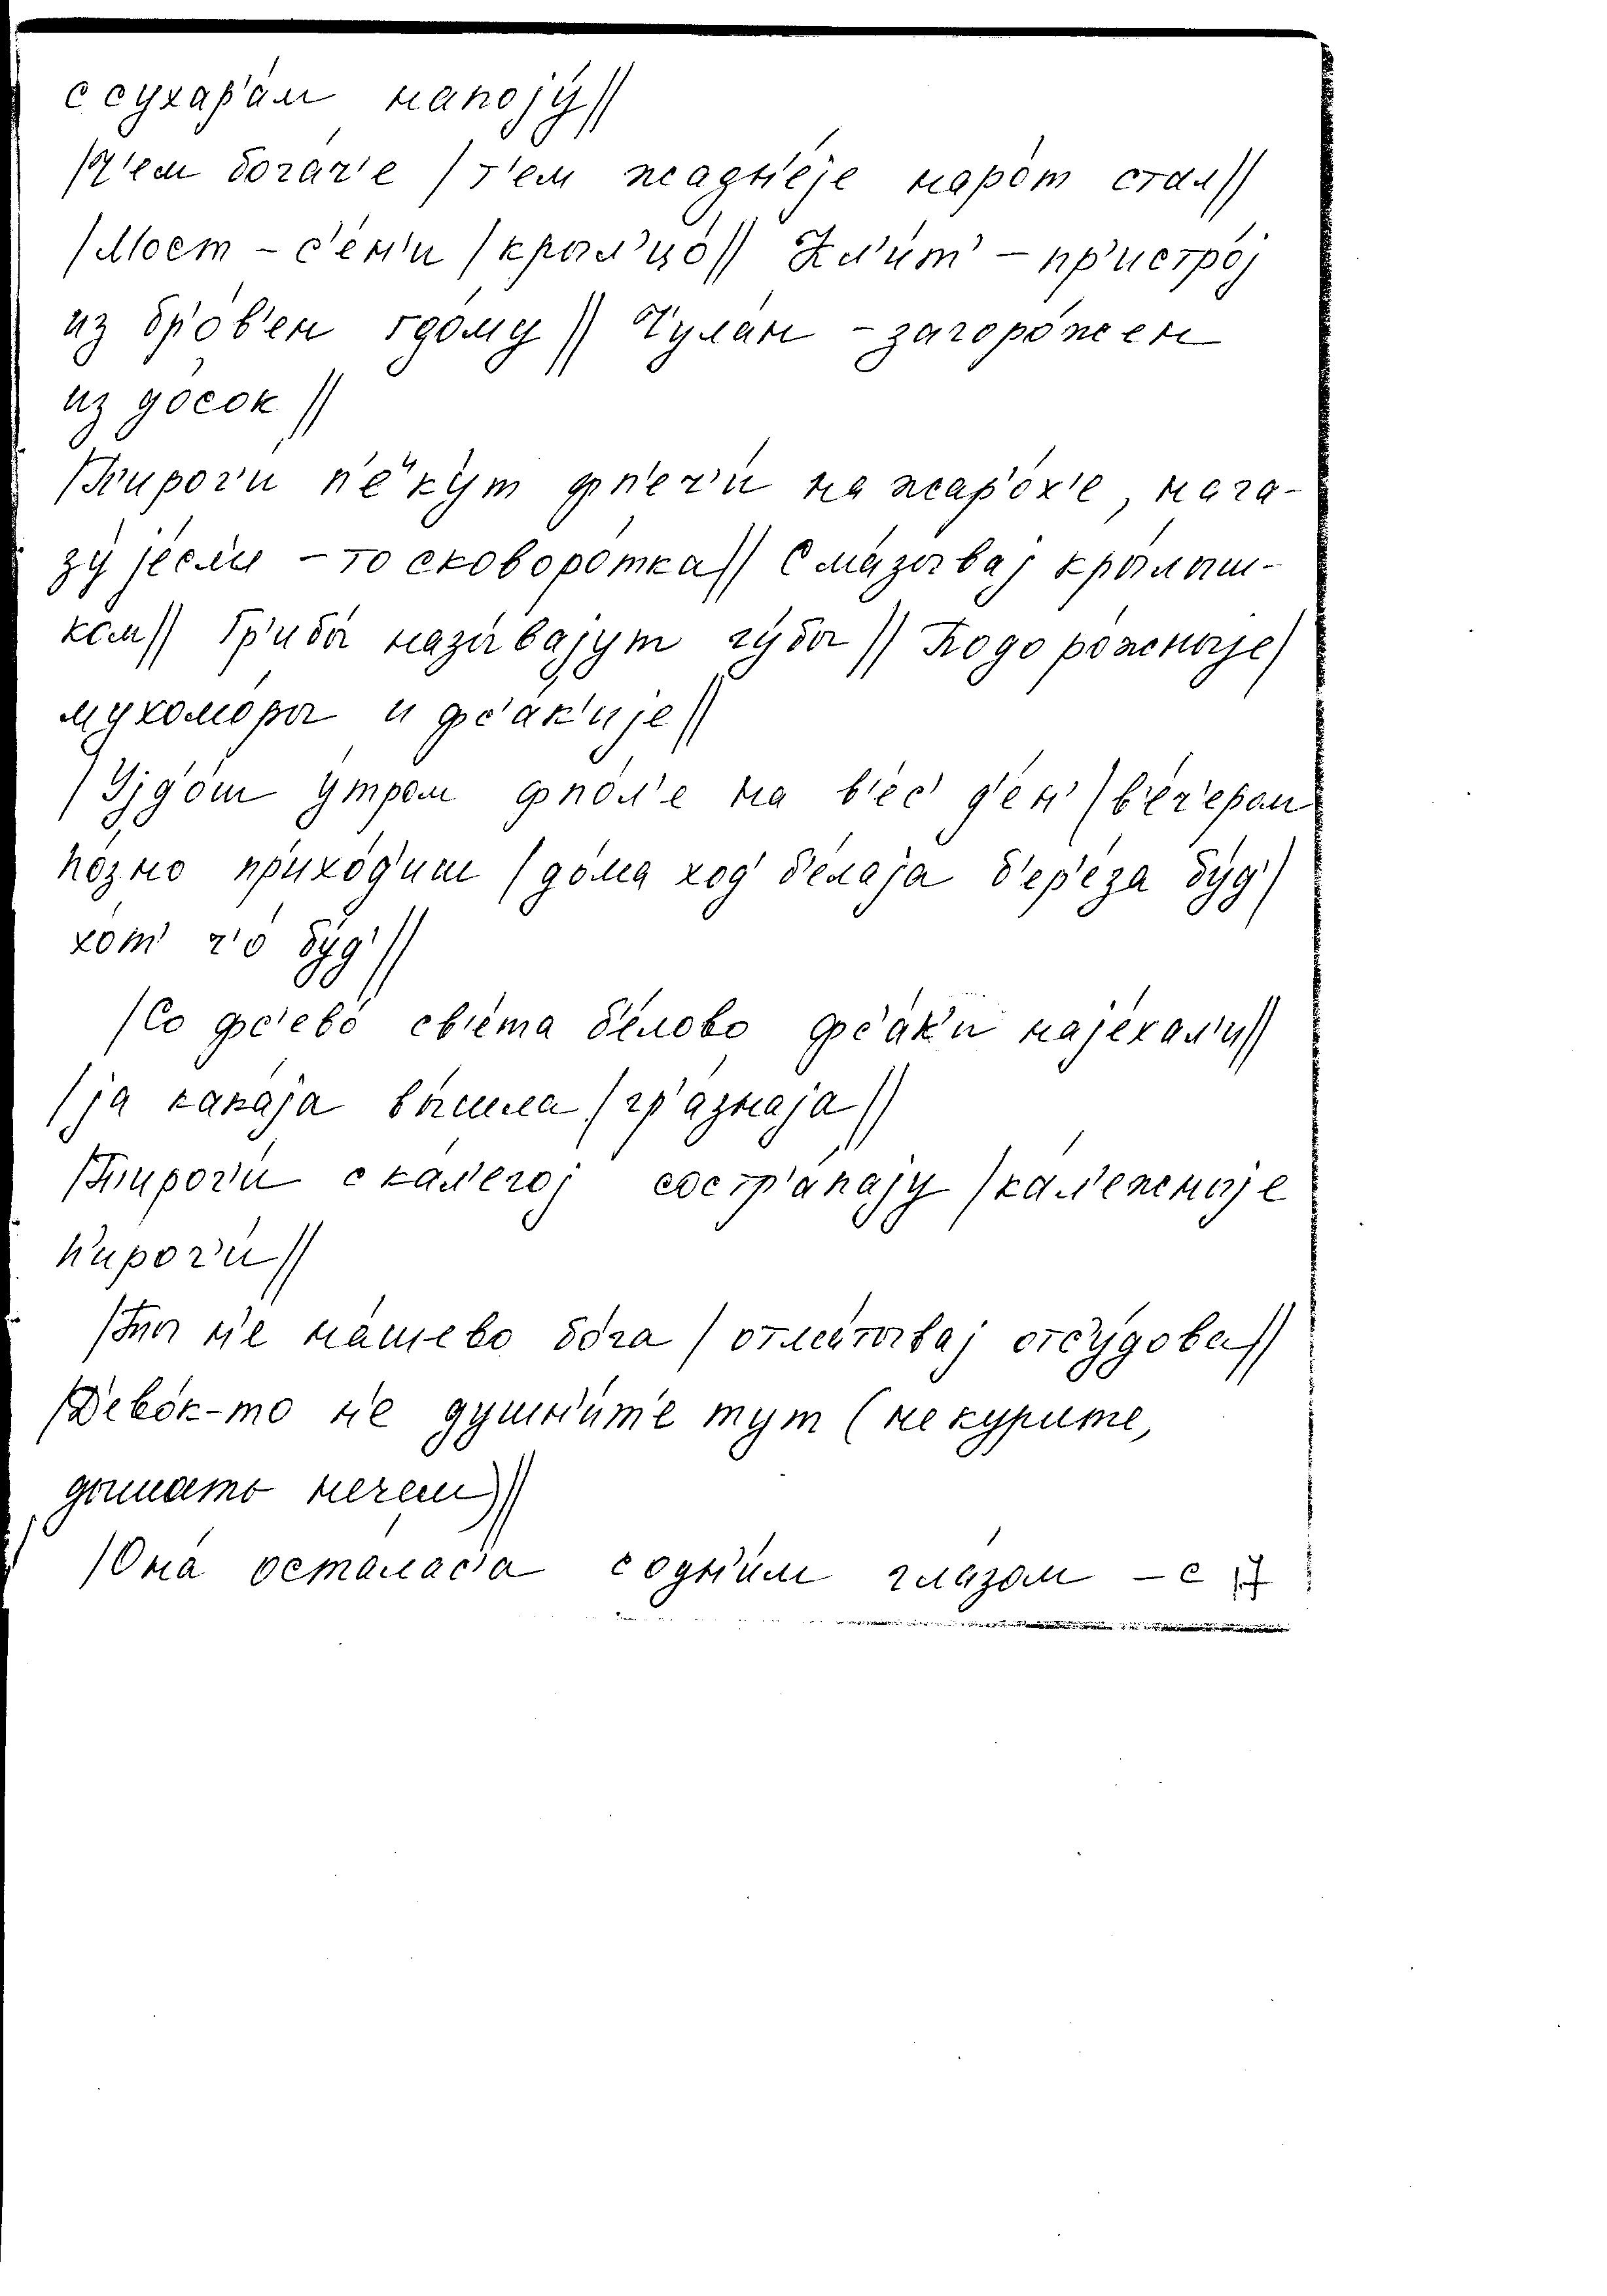 ссухар'ам напоjу́//
/Ч'ем бога́ч'е /т'ем жадн'е́jе наро́т стал//
/Мост - с'е́н'и /крыл'цо́// Кл'ит' - пр'истро́j
из бр'о́в'ен гдо́му // Чула́н - загоро́жен
из до́сок //
/П'ирог'и́ п'еку́т фп'еч'и́ на жар'о́х'е, нага-
зу́ jе́сли - то сковоро́тка// Сма́зываj кры́лыш-
ком// Гр'ибы́ называ́jут гу́бы // Подоро́жныjе/
мухомо́ры и фс'а́к'иjе//
/Уjд'о́ш у́тром фпо́л'е на в'ес' д'ен' /в'е́ч'ером
по́зно пр'ихо́д'иш /до́ма ход' б'е́лаjа б'ер'е́за буд'/
хот' ч'о буд'//
/Со фс'ево́ св'е́та б'е́лово фс'а́к'и наjе́хал'и//
/jа кака́jа вы́шла /гр'а́знаjа//
/П'ирог'и́ с кал'егоj состр'а́паjу /кал'ежныjе
п'ирог'и́//
/Ты н'е на́шево бо́га /отм'а́тываj отсу́дова//
/Дево́к-то н'е душн'и́т'е тут (не курите,
дышать нечем)//
/Она́ оста́лас'а содн'и́м гла́зом - с 17